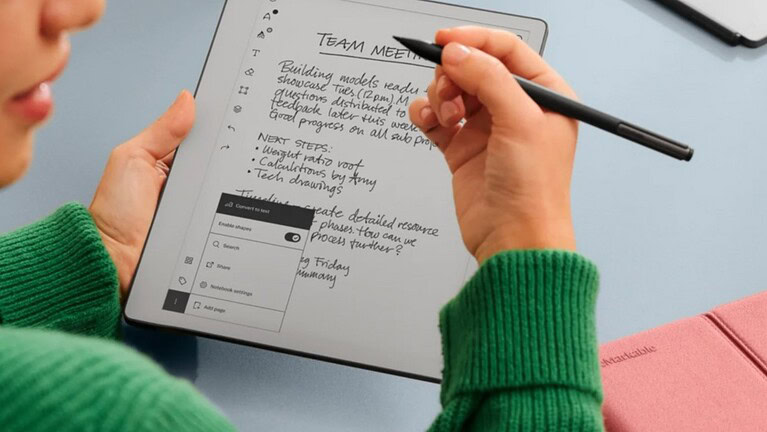 TEAM MEET
Building models ready
showcase Tues. (12pm). M
questions distributed to
feedback later this week
Good progress on all sub pro
NEXT STEPS:
• Weight ratio roof
• Calculations by Amy
• Tech drawings
create detailed resource
phases. How can we
process further?
Friday
Convert to text
Enable shapes
Search
Share
Notebook settings
Add page
T
eMarkable